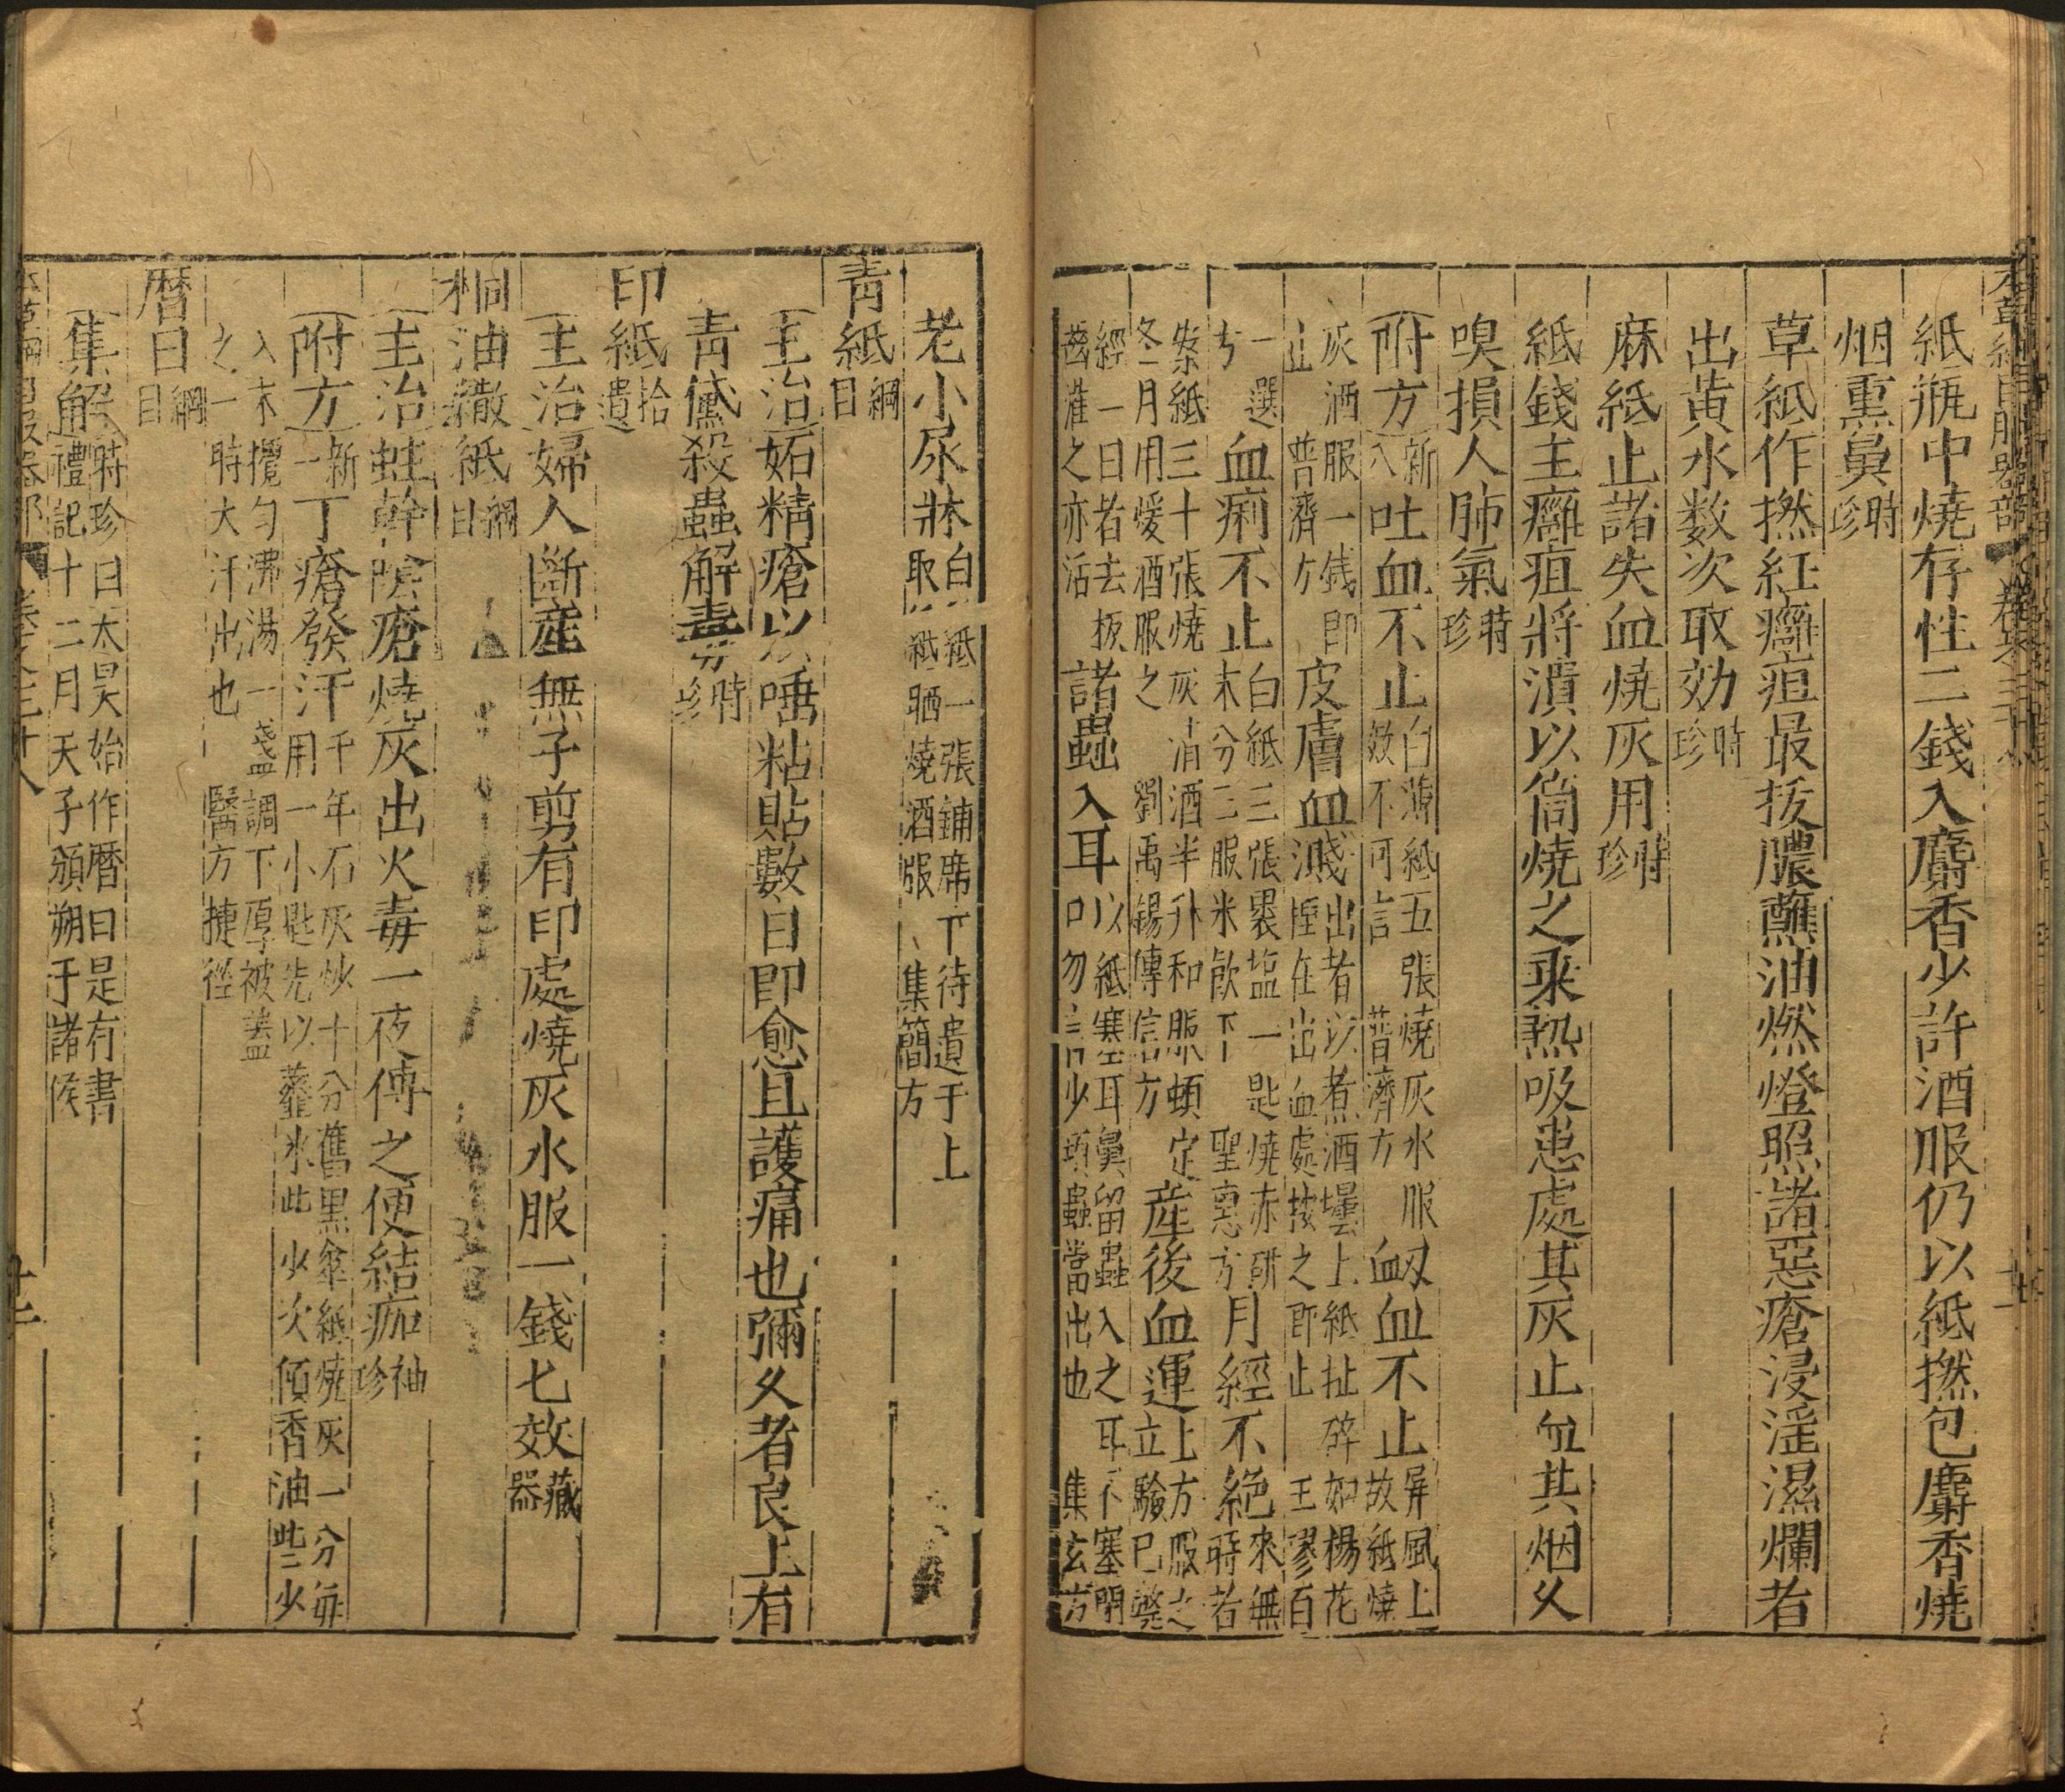 本草綱目服器部 卷之三十八
紙瓶中燒存性二錢入麝香少許酒服仍以紙撚包麝香燒
烟熏鼻時珍
草紙作撚紅癰疽最拔膿蘸油燃燈照諸惡瘡浸淫濕爛者
出黃水数次取効時珍
麻紙止諸失血燒灰用時珍
紙錢主癰疽將潰以筒燒之乘熱吸患處其灰止血其烟久
嗅損人肺氣時珍
附方新八吐血不止白薄紙五張燒灰水服效不可言普濟方衂血不止屏風上故紙燒
灰酒服一錢即止普濟方皮膚血濺出者以煮酒罎上紙扯碎如楊花在出血處按之即止王璆百
一選方血痢不止白紙三張裹盐一匙燒赤研末分三服米飲下聖惠方月經不絕來無時者
案紙三十張燒灰清酒半升和服頓定冬月用煖酒服之劉禹錫傳信方產後血運上方服之立驗已斃
經一日者去板齒灌之亦活諸蟲入耳以紙塞耳鼻留蟲入之耳不塞閉口勿言少頃蟲當出也集玄方
老小尿牀白紙一張鋪席下待遺于上取紙晒燒酒服集簡方
青紙綱目
主治妬精瘡以唾粘貼數日即愈且護痛也彌久者良上有
青黛殺蟲解毒時珍
印紙拾遺
主治婦人斷產無子剪有印處燒灰水服一錢匕效藏器
桐油繖紙綱目
主治蛀幹陰瘡燒灰出火毒一夜傅之便結痂時珍
附方新一丁瘡發汗千年石灰炒十分舊黒傘紙燒灰一分每用一小匙先以虀水些少次傾香油些少
入末攪勻沸湯一盞調下厚被蓋之一時大汗出也醫方捷徑
曆日綱目
集解時珍曰太昊始作曆日是有書禮記十二月天子頒朔于諸侯
本草綱目服器部 卷之三十八